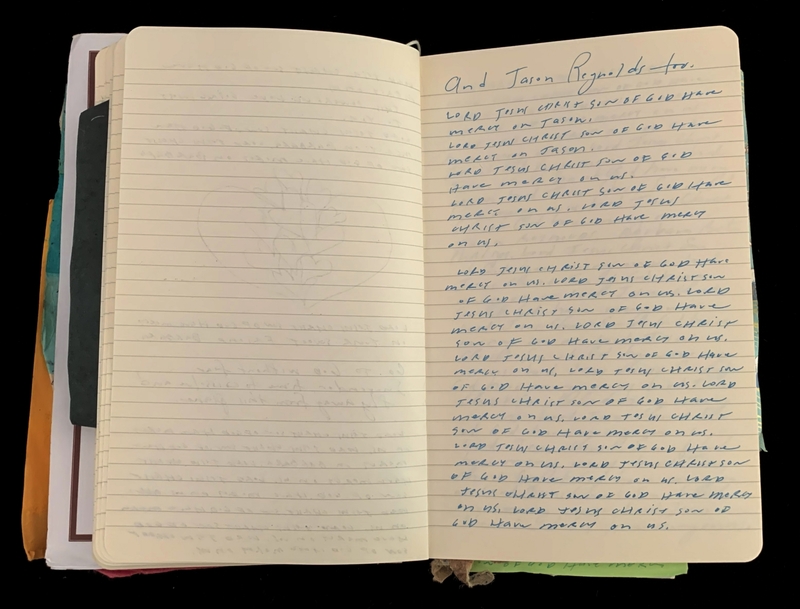 And Jason Reynolds too.
LORD JESUS CHRIST SON OF GOD HAVE
MERCY ON JASON.
LORD JESUS CHRIST SON OF GOD HAVE
MERCY ON JASON.
LORD JESUS CHRIST SON OF GOD
HAVE MERCY ON US.
LORD JESUS CHRIST SON OF GOD HAVE
MERCY ON US. LORD JESUS
CHRIST SON OF GOD HAVE MERCY
ON US.
LORD JESUS CHRIST SON OF GOD HAVE
MERCY ON US. LORD JESUS CHRIST SON
OF GOD HAVE MERCY ON US. LORD
JESUS CHRIST SON OF GOD HAVE
MERCY ON US. LORD JESUS CHRIST
SON OF GOD HAVE MERCY ON US.
LORD JESUS CHRIST SON OF GOD HAVE
MERCY ON US, LORD JESUS CHRIST SON
OF GOD HAVE MERCY ON US. LORD
JESUS CHRIST SON OF GOD HAVE
MERCY ON US, LORD JESUS CHRIST
SON OF GOD HAVE MERCY ON US.
LORD JESUS CHRIST SON OF GOD HAVE
MERCY ON US. LORD JESUS CHRIST SON
OF GOD HAVE MERCY ON US. LORD
JESUS CHRIST SON OF GOD HAVE MERCY
ON US, LORD JESUS CHRIST SON OF
GOD HAVE MERCY ON US.